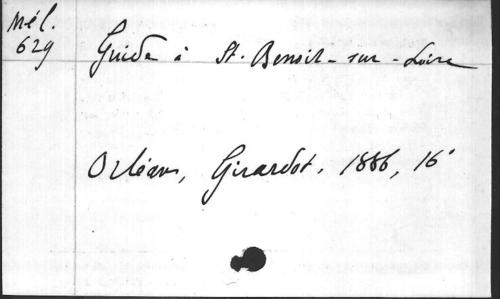 Mél.
629
Guide à St. Benoit-sur-Loire
Orléans, Girardot, 1886, 16°